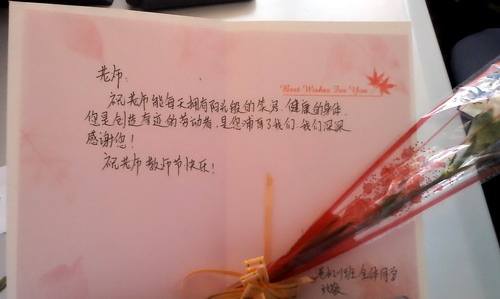 老师:
Best Wishes For You
祝老师能每天拥有阳光般的笑容,健康的身体,
您是创造奇迹的劳动者,是您哺育了我们,我们深深
感谢您!
祝老师教师节快乐!
班全体同学